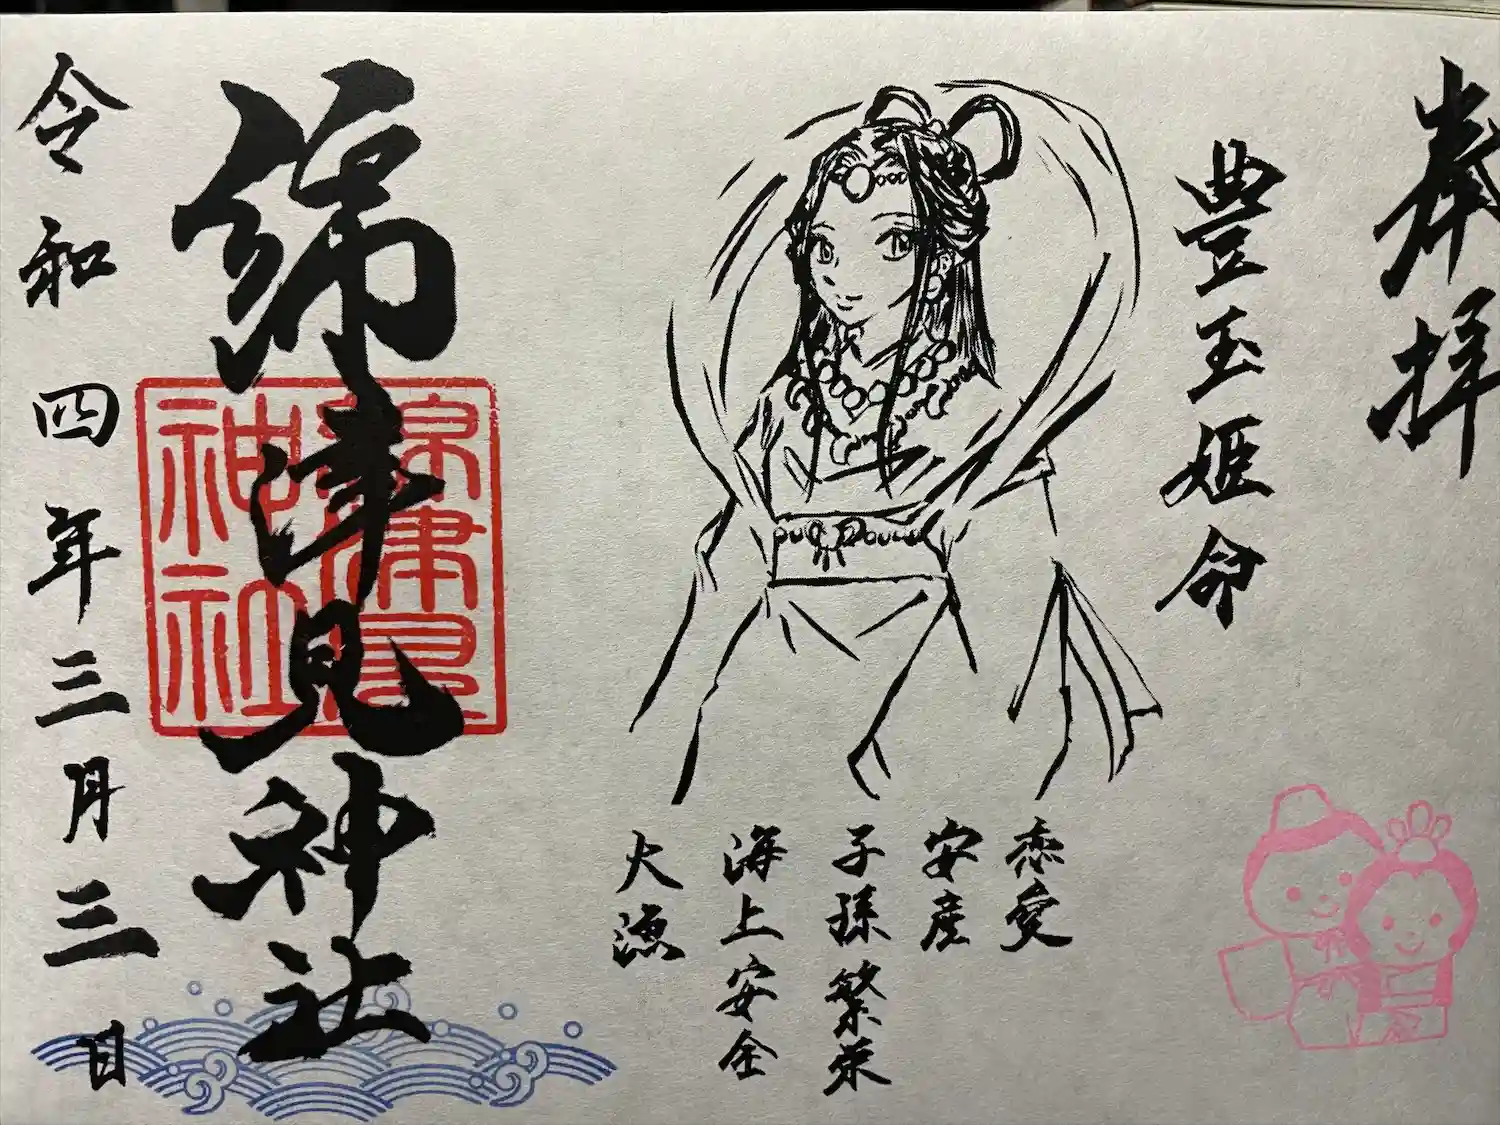 奉拝
豊玉姫命
恋愛
安産
子孫繁栄
海上安全
大漁
綿津見神社
綿津見
神社
令和四年三月三日